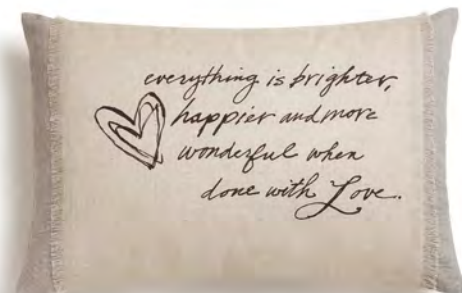 everything is brighter,
happier and more
wonderful when
done with Love.